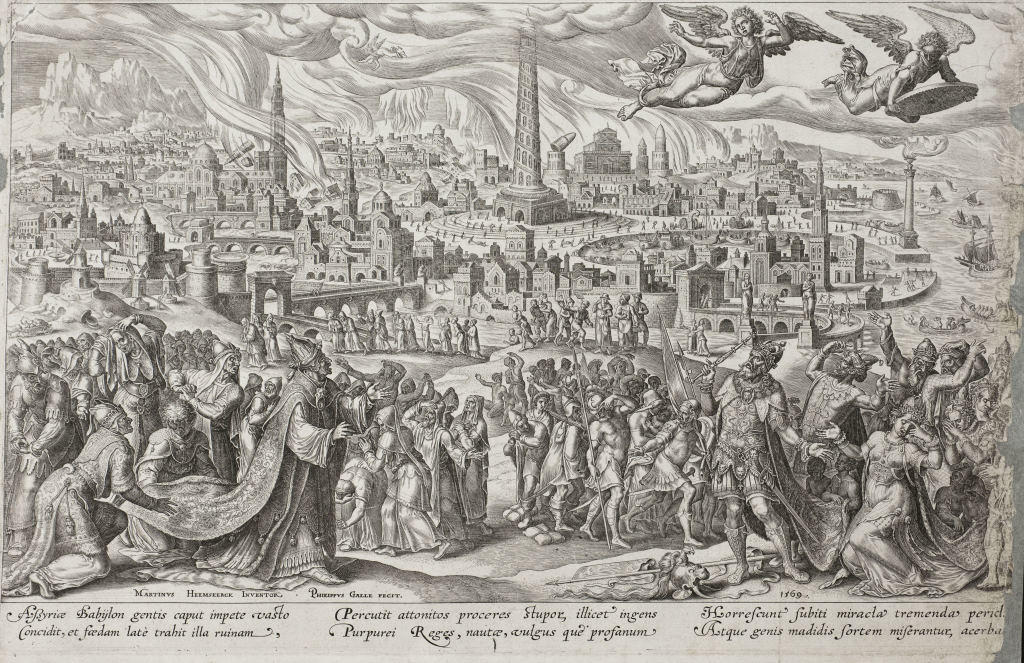 MARTINVS HEEMSKERCK INVENTOR. PHILIPPVS GALLE FECIT.
1569
Assyriæ Babylon gentis caput impete vasto
Concidit, et fœdam latè trahit illa ruinam,
Percutit attonitos proceres stupor, illicet ingens
Purpurei Reges, nautæ, vulgus què profanum
Horrescunt subiti miracla tremenda pericl
Atque genis madidis sortem miserantur, acerba